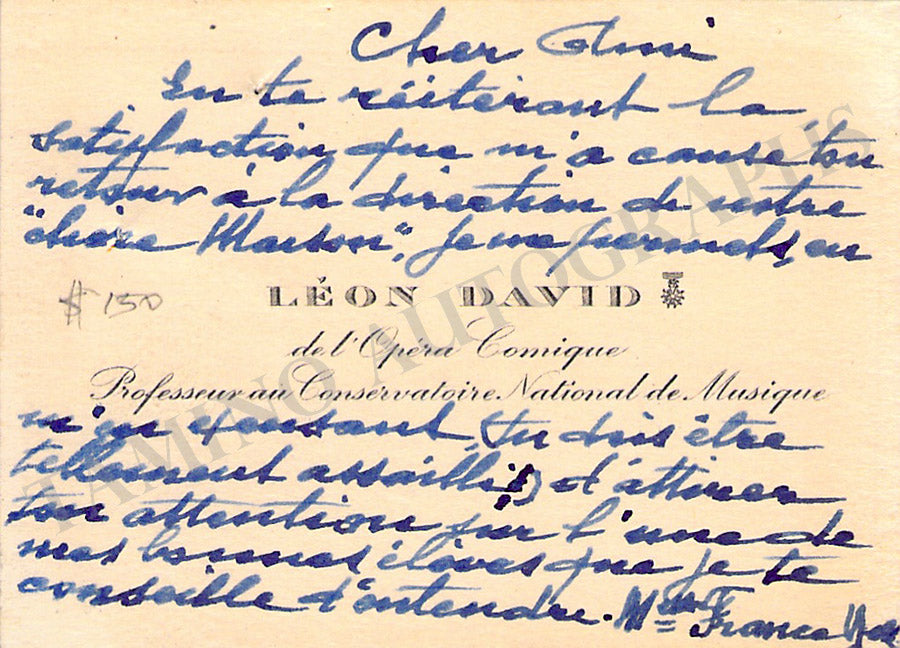 Cher Ami
En te réitérant la
satisfaction que m'a causé ton
retour à la direction de notre
"chère Maison", je me permets, en
$ 150
LÉON DAVID
de l'Opéra Comique
Professeur au Conservatoire National de Musique
m'en excusant (tu dois être
tellement assailli!) d'attirer
ton attention sur l'une de
mes bonnes élèves que je te
conseille d'entendre. Mlle France
TAMINO AUTOGRAPHS